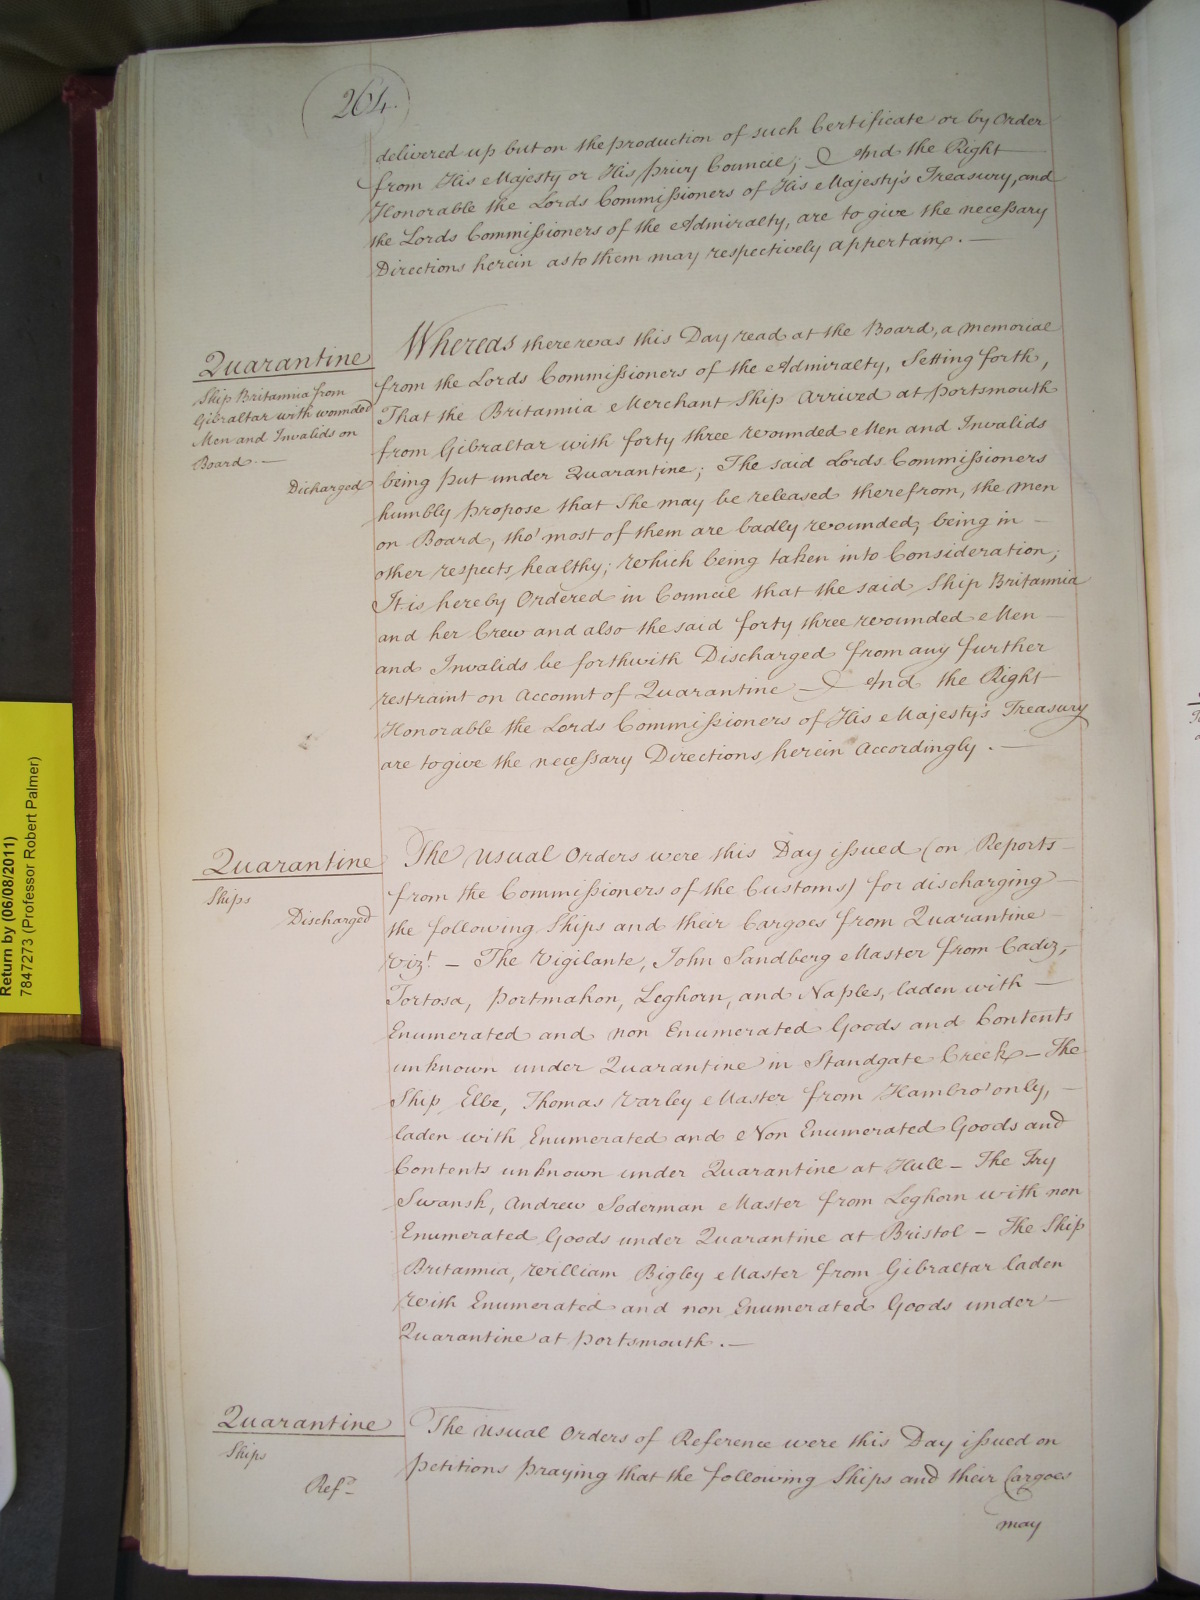 264.
delivered up but on the production of such Certificate or by Order
from His Majesty or His Privy Council; And the Right
Honorable the Lords Commissioners of His Majesty's Treasury, and
the Lords Commissioners of the Admiralty, are to give the necessary
Directions herein as to them may respectively appertain. —
Quarantine
Ship Britannia from
Gibraltar with wounded
Men and Invalids on
Board. —
Dicharged
Whereas there was this Day read at the Board, a memorial
from the Lords Commissioners of the Admiralty, Setting forth,
That the Britannia Merchant Ship Arrived at Portsmouth
from Gibraltar with forty three wounded Men and Invalids
being put under Quarantine; The said Lords Commissioners
humbly propose that She may be released therefrom, the Men
on Board, tho' most of them are badly wounded, being in —
other respects healthy; which being taken into Consideration,
It is hereby Ordered in Council that the said Ship Britannia
and her Crew and also the said forty three wounded Men —
and Invalids be forthwith Discharged from any further
restraint on Account of Quarantine — And the Right
Honorable the Lords Commissioners of His Majesty's Treasury
are to give the necessary Directions herein Accordingly. —
Quarantine
Ships
Discharged
The usual Orders were this Day issued (on Reports —
from the Commissioners of the Customs) for discharging —
the following Ships and their Cargoes from Quarantine —
Vizt. — The Vigilante, John Sandberg Master from Cadiz,
Tortosa, Portmahon, Leghorn, and Naples, laden with —
Enumerated and non Enumerated Goods and Contents
unknown under Quarantine in Standgate Creek — The
Ship Elbe, Thomas Varley Master from Hambro' only, —
laden with Enumerated and Non Enumerated Goods and
Contents unknown under Quarantine at Hull — The Try
Swansk, Andrew Soderman Master from Leghorn with non
Enumerated Goods under Quarantine at Bristol — The Ship
Britannia, William Bigley Master from Gibraltar laden
with Enumerated and non Enumerated Goods under —
Quarantine at Portsmouth. —
Quarantine
Ships
Refce
The usual Orders of Reference were this Day issued on
Petitions praying that the following Ships and their Cargoes
may
Return by (06/08/2011)
7847273 (Professor Robert Palmer)